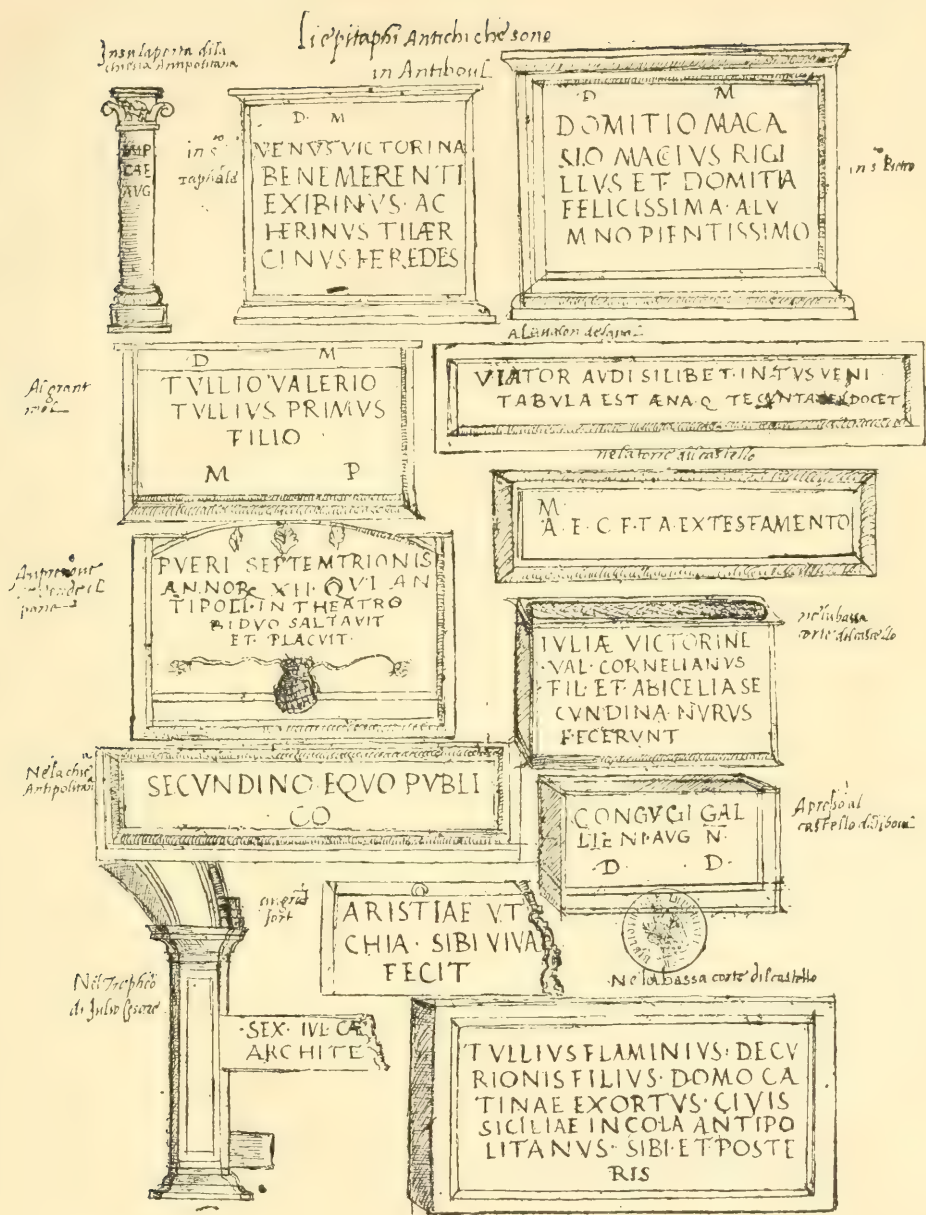 Li epitaphi Antichi che sono
in Antiboul
Insula porta dila
chiesia Antipolitana
IMP
CAE
AVG
in s^to
raphald
D· M
VENVS VICTORINA
BENEMERENTI
EXIBINVS· AC
HERINVS TILÆR
CINVS HEREDES
D M
DOMITIO MACA
SIO MACIVS RIGI
LLVS ET DOMITIA
FELICISSIMA· ALV
MNO PIENTISSIMO
in s^to Pietro
Al grant
D M
TVLLIO VALERIO
TVLLIVS PRIMVS
FILIO
M P
VIATOR AVDI SI LIBET· INTVS VENI·
TABVLA EST ÆNA· Q TE CVNTA DOCET
nela torre dil castello
M·
A· E· C· F· T A· EX TESTAMENTO
PVERI SEPTEMTRIONIS
ANNOR XII· QVI AN
TIPOLI· IN THEATRO
BIDVO SALTAVIT
ET· PLACVIT·
nela bassa
corte dil castello
IVLIÆ VICTORINE
·VAL· CORNELIANVS
·FIL· ET· ABICELIA SE
CVNDINA· NVRVS
FECERVNT
Nela chie^a
Antipolitan^a
SECVNDINO· EQVO PVBLI
CO
CONGVGI GAL
LIENI· AVG N·
·D· D·
Apreso al
castello di Iboul
ARISTIAE VT
CHIA· SIBI VIVA
FECIT
Nel Tropheo
di Julio Cesare
·SEX· IVL· CÆ
ARCHITE
Nela bassa corte dil castello
TVLLIVS FLAMINIVS· DECV
RIONIS FILIVS· DOMO CA
TINAE EXORTVS· CIVIS
SICILIAE INCOLA ANTIPO
LITANVS· SIBI· ET· POSTE
RIS